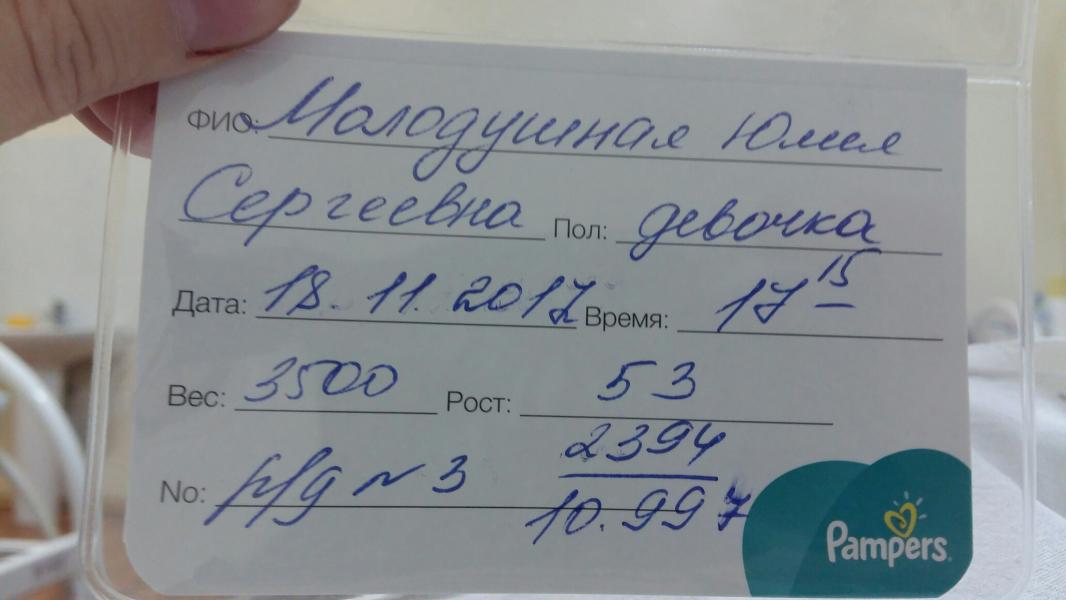 ФИО: Малодушная Юлия
Сергеевна Пол: девочка
Дата: 18.11.2017 Время: 17 15
Вес: 3500 Рост: 53
No: р/д N 3 2394
10.997
Pampers